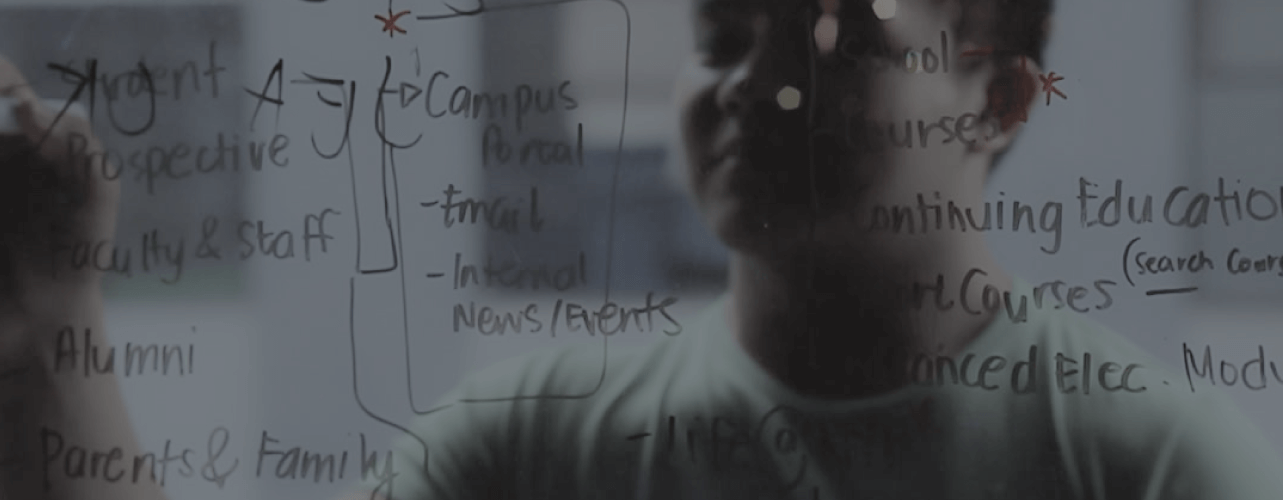 Prospective
Faculty & Staff
Alumni
Parents & Family
Campus
Portal
- Email
- Internal
News/Events
School
Courses
Continuing Educatio
Courses (search Cour
Elec. Modu